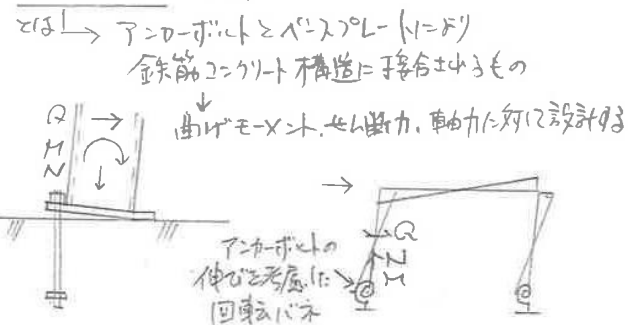 とは! → アンカーボルトとベースプレートにより
鉄筋コンクリート構造に接合されるもの
↓
曲げモーメント、せん断力、軸力に対して設計する
Q →
M
N
→
アンカーボルトの
伸びを考慮した
回転バネ
Q
N
M